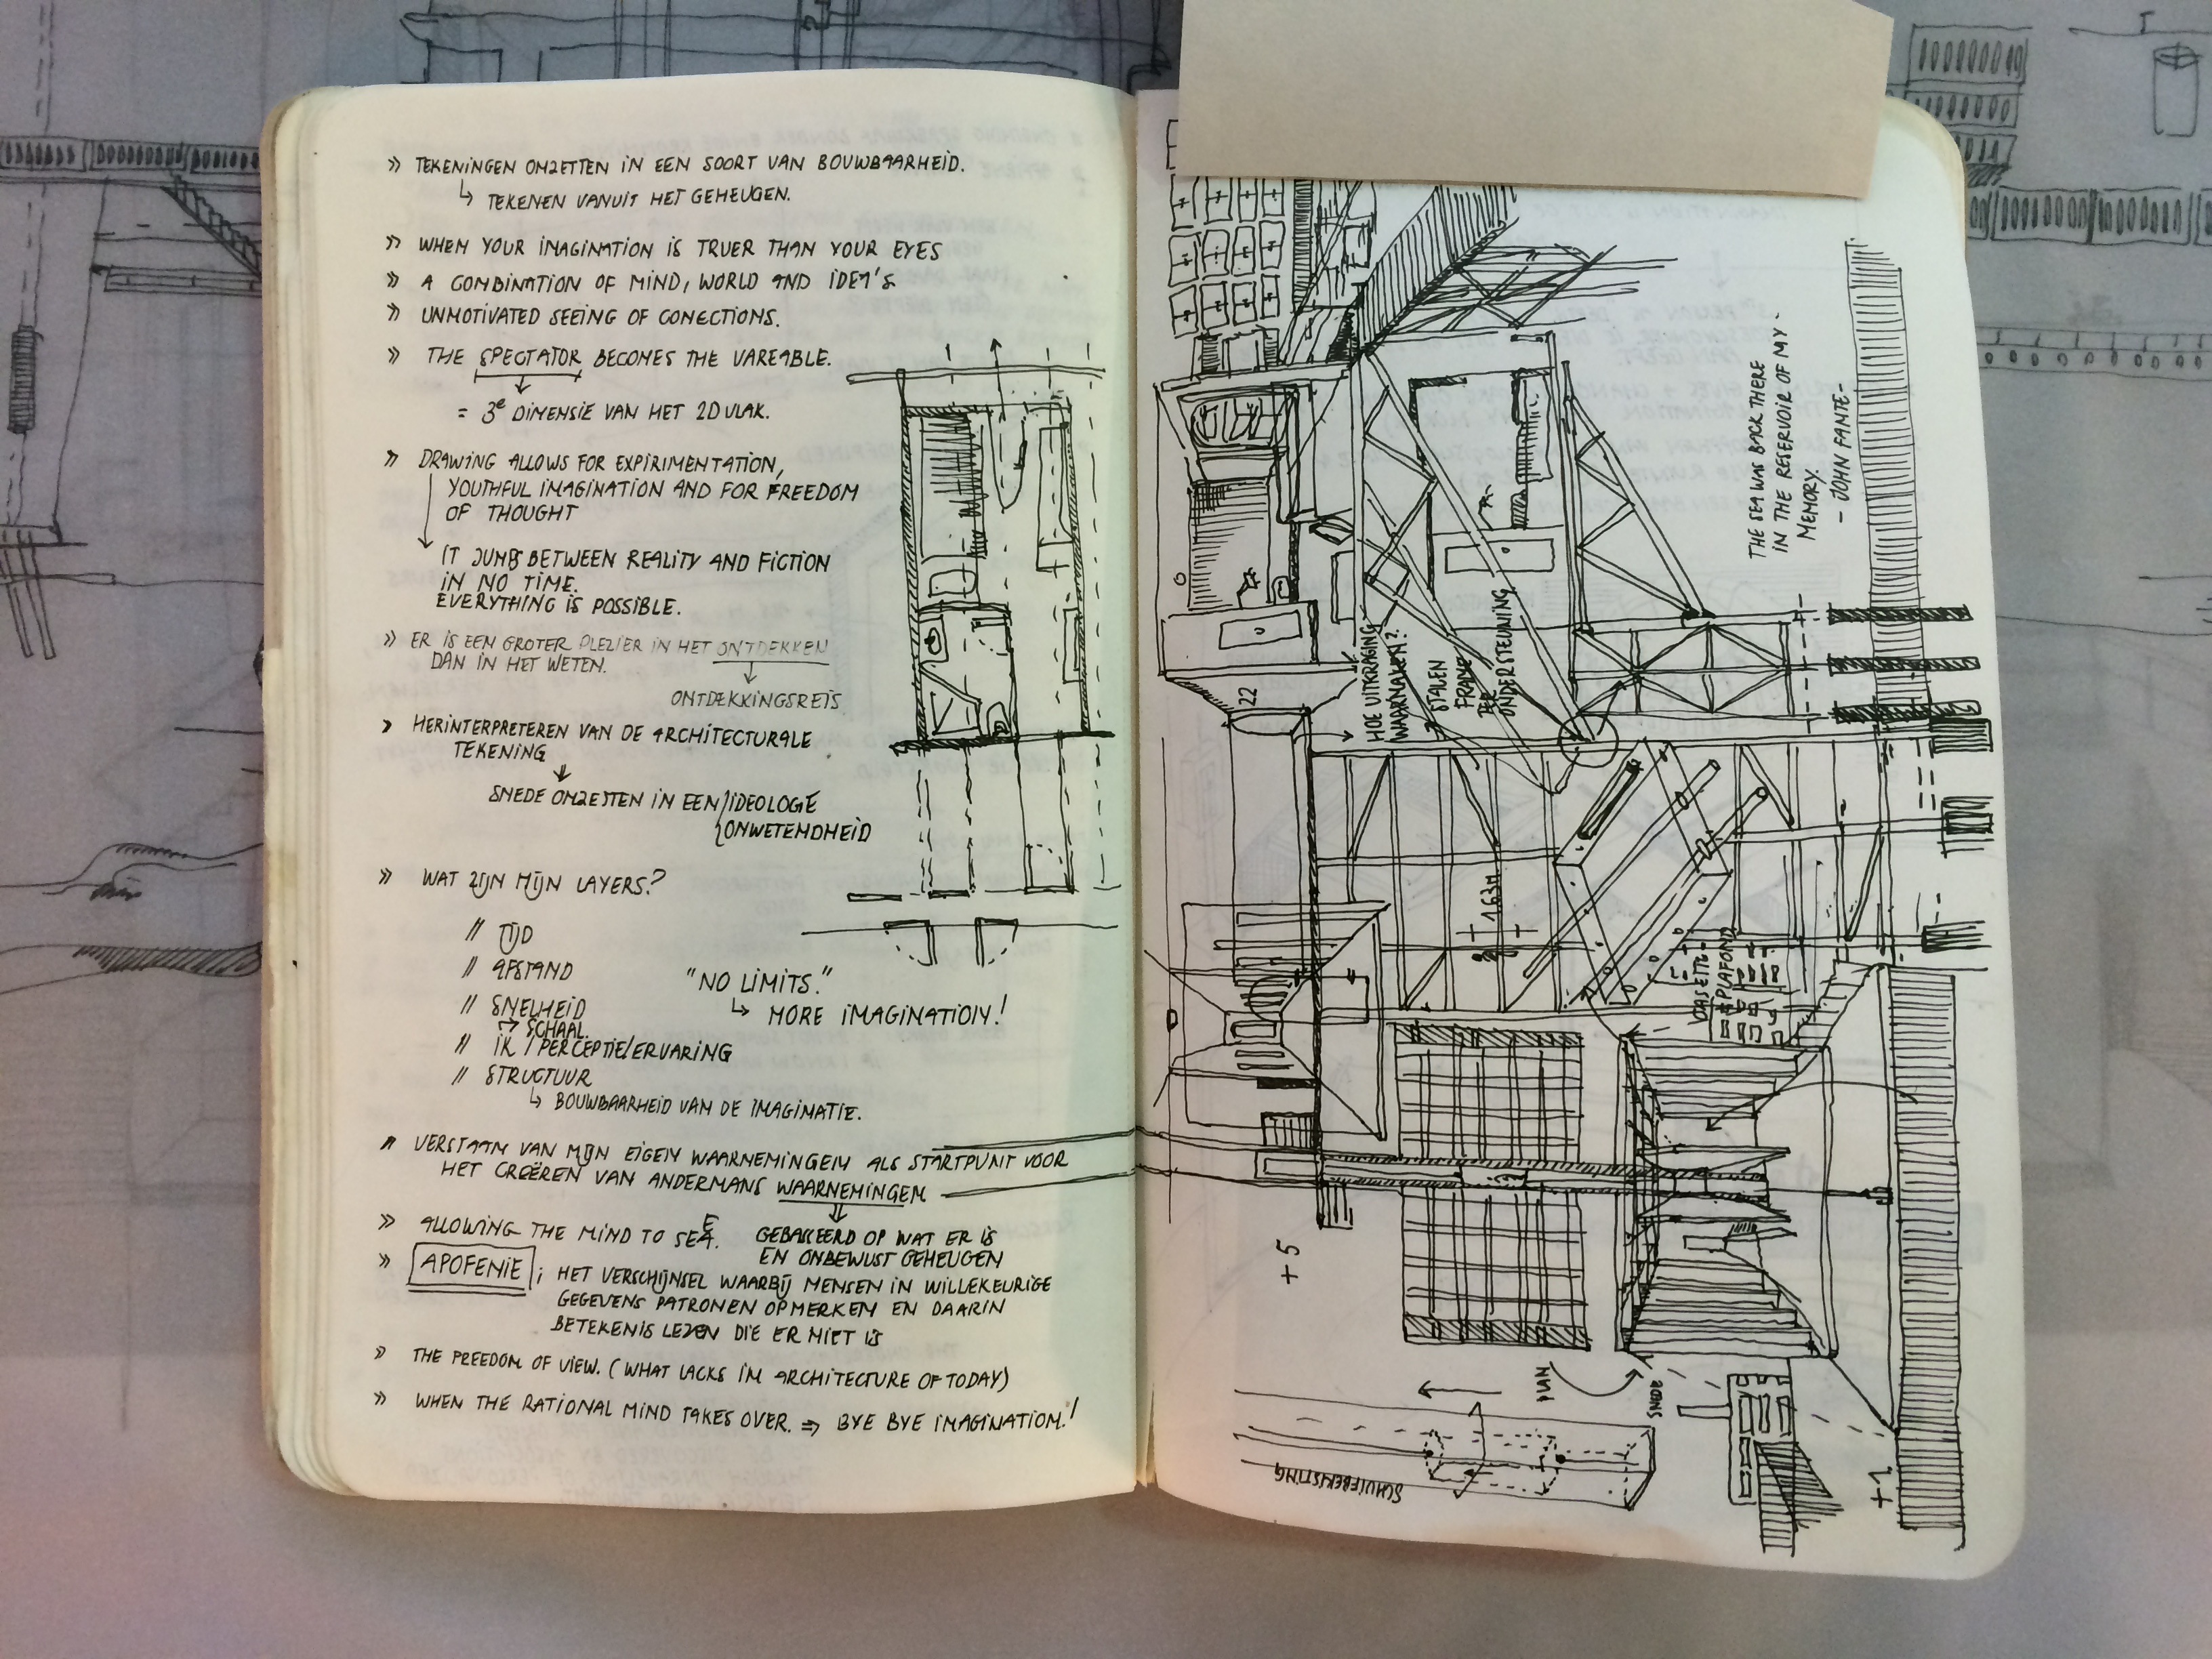 » TEKENINGEN OMZETTEN IN EEN SOORT VAN BOUWBAARHEID.
↳ TEKENEN VANUIT HET GEHEUGEN.
» WHEN YOUR IMAGINATION IS TRUER THAN YOUR EYES
» A COMBINATION OF MIND, WORLD AND IDEA'S
» UNMOTIVATED SEEING OF CONECTIONS.
» THE SPECTATOR BECOMES THE VAREABLE.
= 3e DIMENSIE VAN HET 2D VLAK.
» DRAWING ALLOWS FOR EXPIRIMENTATION,
YOUTHFUL IMAGINATION AND FOR FREEDOM
OF THOUGHT
IT JUMPS BETWEEN REALITY AND FICTION
IN NO TIME.
EVERYTHING IS POSSIBLE.
» ER IS EEN GROTER PLEZIER IN HET ONTDEKKEN
DAN IN HET WETEN.
ONTDEKKINGSREIS
» HERINTERPRETEREN VAN DE ARCHITECTURALE
TEKENING
SNEDE OMZETTEN IN EEN IDEOLOGIE
ONWETENDHEID
» WAT ZIJN MIJN LAYERS?
// TIJD
// AFSTAND
// SNELHEID
↳ SCHAAL
// IK / PERCEPTIE/ERVARING
// STRUCTUUR
↳ BOUWBAARHEID VAN DE IMAGINATIE.
"NO LIMITS."
↳ MORE IMAGINATION!
» VERSTAAN VAN MIJN EIGEN WAARNEMINGEN ALS STARTPUNT VOOR
HET CREËREN VAN ANDERMANS WAARNEMINGEN
GEBASEERD OP WAT ER IS
EN ONBEWUST GEHEUGEN
» ALLOWING THE MIND TO SEE.
» APOFENIE ; HET VERSCHIJNSEL WAARBIJ MENSEN IN WILLEKEURIGE
GEGEVENS PATRONEN OPMERKEN EN DAARIN
BETEKENIS LEZEN DIE ER NIET IS
» THE FREEDOM OF VIEW. (WHAT LACKS IN ARCHITECTURE OF TODAY)
» WHEN THE RATIONAL MIND TAKES OVER. ⇒ BYE BYE IMAGINATION!
THE SEA WAS BACK THERE
IN THE RESERVOIR OF MY -
MEMORY.
- JOHN FANTE -
HOE UITKRAGING
WAARMAKEN?
→ STALEN
FRAME
TER
ONDERSTEUNING
22
163M
PLAFOND
+5
PLAN
SNEDE
SCHUIFBEKISTING
+1